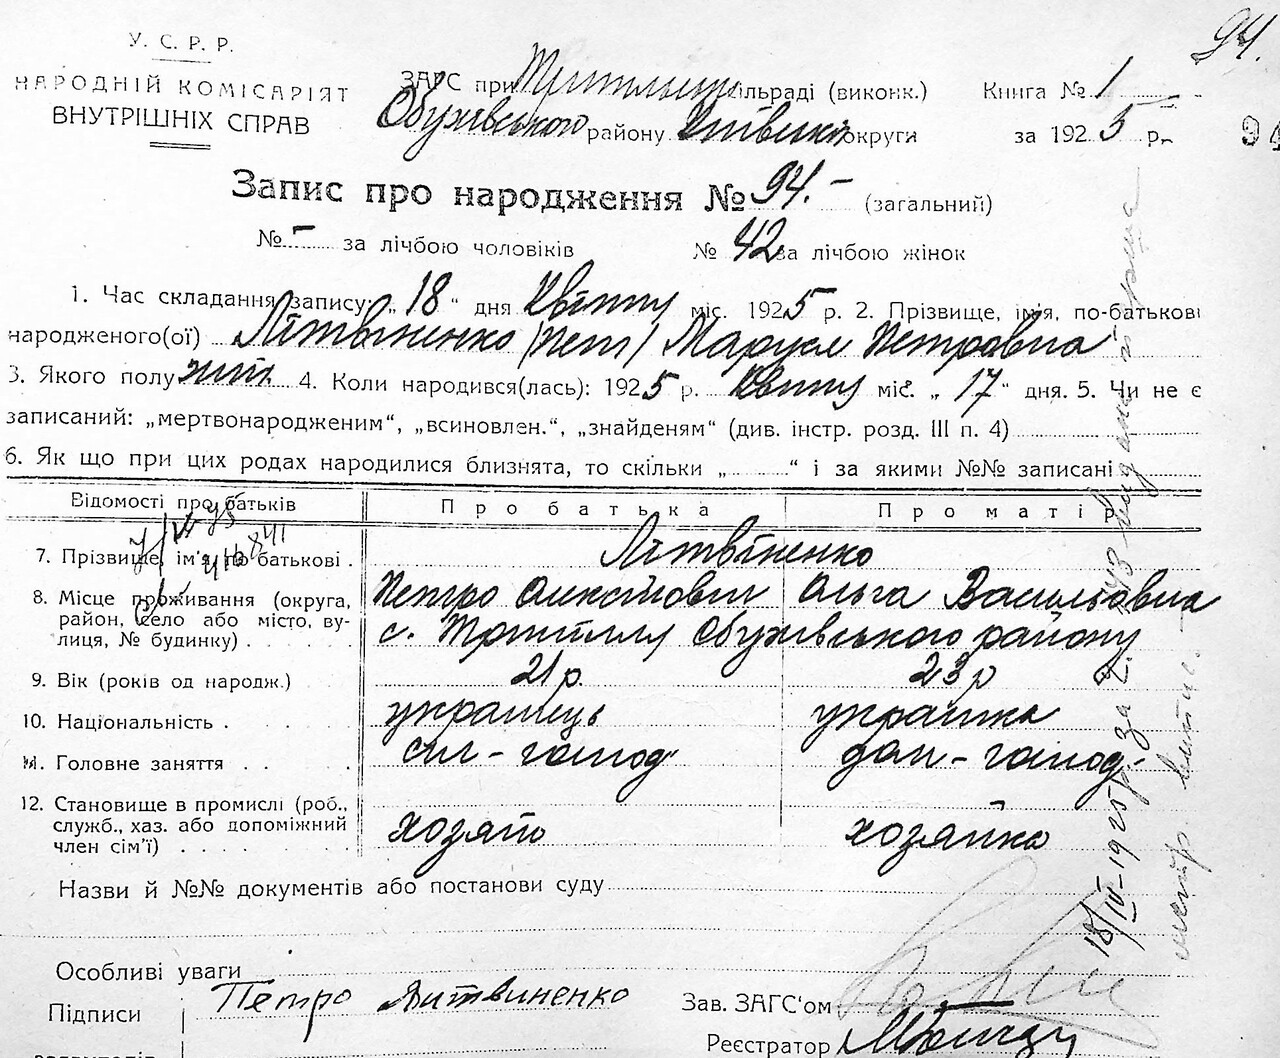 94.
У. С. Р. Р.
НАРОДНІЙ КОМІСАРІЯТ
ВНУТРІШНІХ СПРАВ
ЗАГС при сільраді (виконк.) Книга № 1
Обухівського району округи за 1925 р. 94
Запис про народження № 94. – (загальний)
№ – за лічбою чоловіків № 42 за лічбою жінок
1. Час складання запису: „ 18 “ дня Квітня міс. 1925 р. 2. Прізвище, ім'я, по-батькові
народженого(ої) Літвіненко Маруся Петровна
3. Якого полу жін. 4. Коли народився(лась): 1925 р. Квітня міс. „ 17 “ дня. 5. Чи не є
записаний: „мертвонародженим“, „всиновлен.“, „знайденям“ (див. інстр. розд. III п. 4)
6. Як що при цих родах народилися близнята, то скільки „ “ і за якими №№ записані
Відомості про батьків Про батька Про матір
7. Прізвище, ім'я, по батькові . Літвіненко
Петро Ольга Васильовна
8. Місце проживання (округа, район, село або місто, вулиця, № будинку) с. Трипілля Обухівського району
9. Вік (років од народж.) 21 р. 23 р
10. Національність українець українка
11. Головне заняття сіл-господ дом-господ.
12. Становище в промислі (роб., служб., хаз. або допоміжний член сім'ї) хозяїн хозяйка
Назви й №№ документів або постанови суду
Особливі уваги
Підписи Петро Литвиненко Зав. ЗАГС'ом
Реєстратор
18/IV-1925 р. за